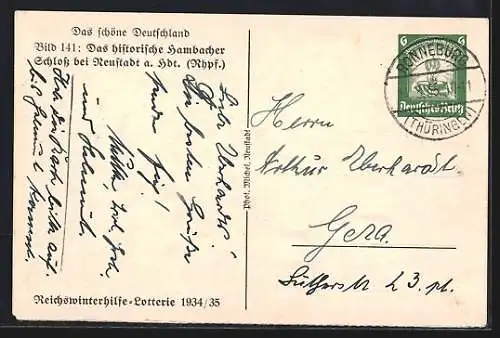 Das schöne Deutschland
Bild 141: Das historische Hambacher
Schloß bei Neustadt a. Hdt. (Rhpf.)
Liebe Eberhardts!
Die besten Grüße
sendet
Mutter,
und Helmut.
Hebt die Karte bitte auf
bis Helmut kommt.
Reichswinterhilfe-Lotterie 1934/35
Phot. Michel, Neustadt
6 6
Deutsches Reich
RONNEBURG
(THÜRINGEN)
Herrn
Arthur Eberhardt.
Gera.
Lutherstr. 23. pt.